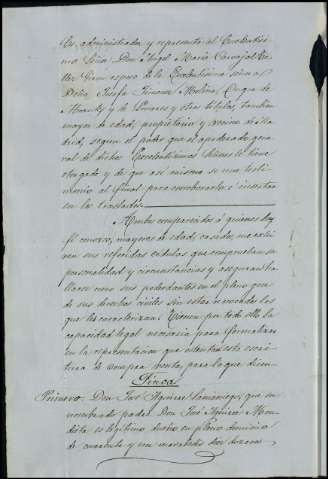 Es, administrada y representa al Excelentisi-
mo Señor Don Angel Maria Carvajal
como esposo de la Excelentisima señora
Doña Josefa Jimenez Molina, Duque de
Abrantes y de Linares y otros titulos, tambien
mayor de edad, propietario y vecino de Ma-
drid, segun el poder que el apoderado gene-
ral de dichos Excelentisimos Señores le tiene
otorgado y de que asi mismo se une testi-
monio al final para corroborarlo e insertar
en los traslados
Ambos comparecientes á quienes doy
fé conozco, mayores de edad, casados, me exhi-
ben sus referidas cedulas que comprueban su
personalidad y circunstancias y aseguran ha-
llarse como sus poderdantes en el pleno goce
de sus derechos civiles sin estar revocados los
que les caracterizan: Tienen por todo ello la
capacidad legal necesaria para formalizar
en la representacion que ostentan esta escri-
tura de compra venta, para lo que dicen
Finca
Primero. Don José Aguirre Samaniego, que en
su nombre poder Don José Aguirre Men-
dieta es legitimo dueño en pleno dominio
de cuarenta y una